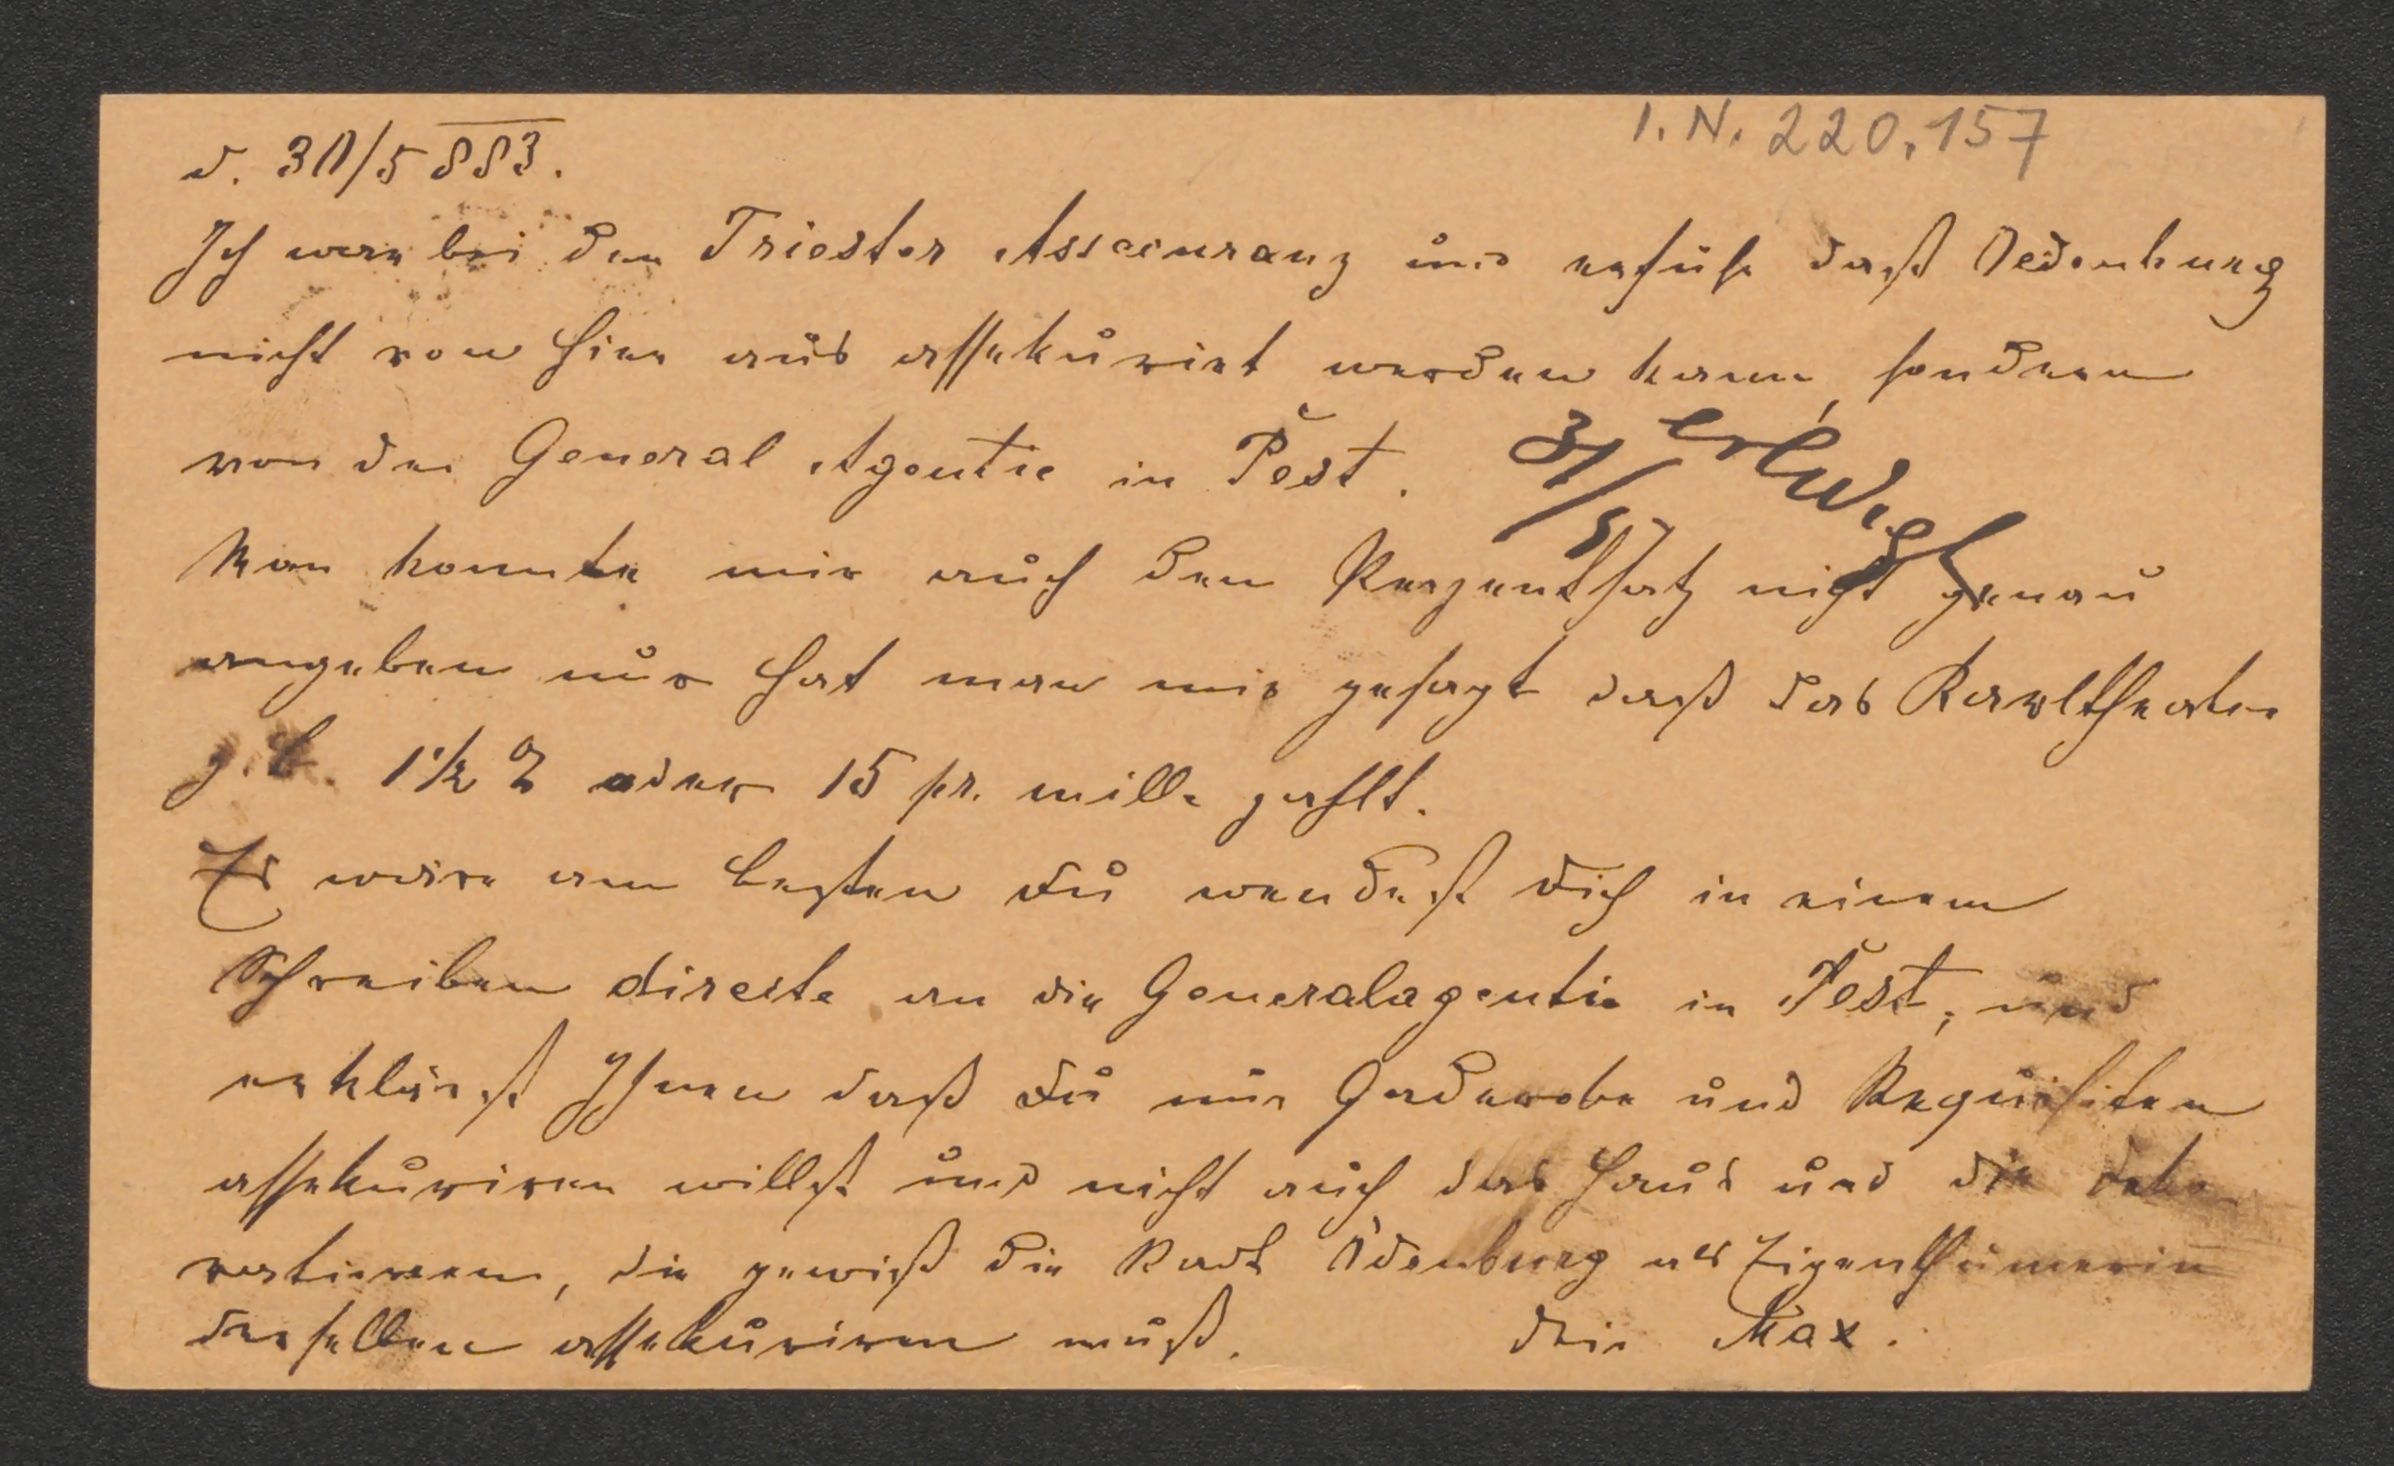 I. N. 220.157
d. 30/5 883.
Ich war bei der Triester Assecuranz und erfuhr daß Oedenburg
nicht von hier aus assekurirt werden kann, sondern
von der General Agentie in Pest.
31/5 erledigt
Man konnte mir auch den Perzentsatz nicht genau
angeben nur hat man mir gesagt daß das Karltheater
z. B. 1 1/2 % oder 15 pr. mille zahlt.
Es wäre am besten du wendest dich in einem
Schreiben directe an die Generalagentie in Pest, und
erklärst Ihnen daß du nur Gaderobe und Requisiten
assekuriren willst und nicht auch das Haus und die Deko-
rationen, die gewiß die Stadt Ödenburg als Eigenthümerin
derselben assekuriren muß.
dein Max.